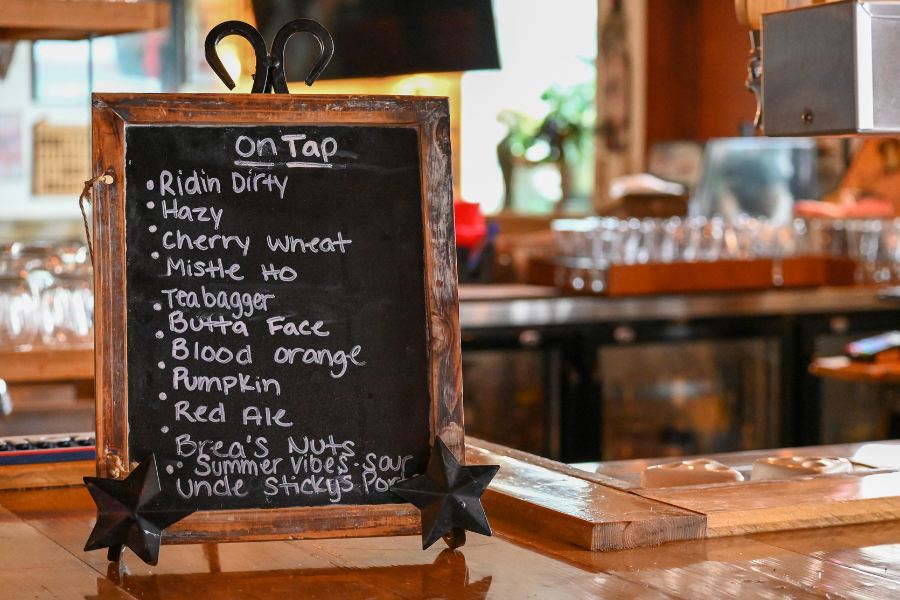 On Tap
• Ridin Dirty
• Hazy
• Cherry Wheat
• Mistle Ho
Teabagger
• Butta Face
• Blood orange
• Pumpkin
• Red Ale
• Brea's Nuts
• Summer Vibes - Sour
Uncle Stickys